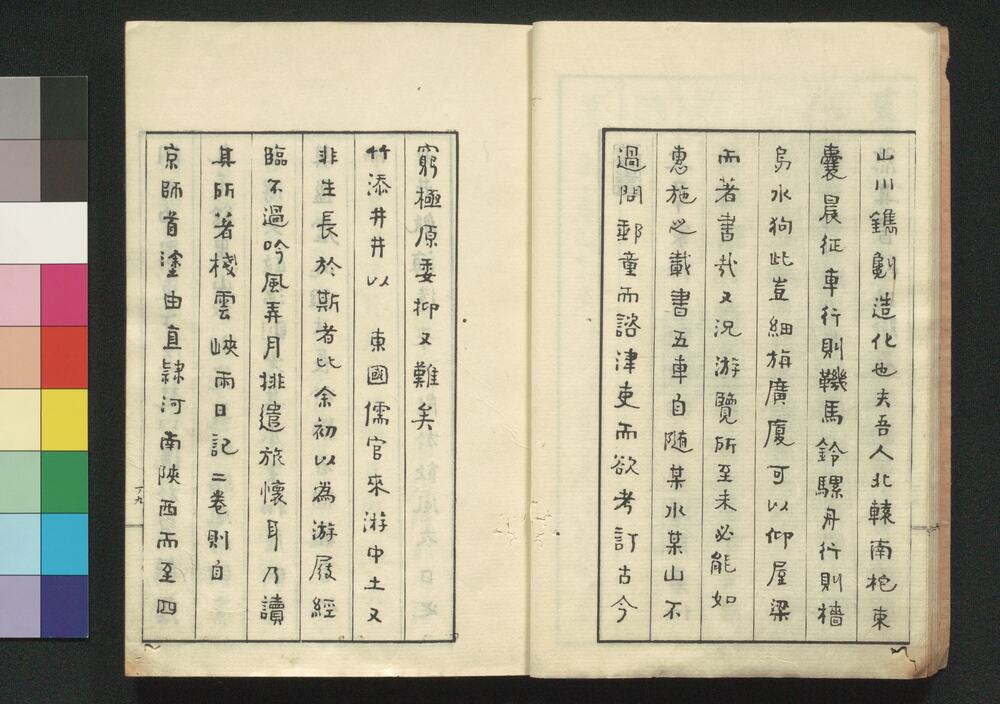 山川鐫劖造化也夫吾人北轅南柁東
囊晨征車行則鞿馬鈴騾舟行則檣
烏水狗此豈細旃廣廈可以仰屋梁
而著書哉又況游覽所至未必能如
惠施之載書五車自随某水某山不
過問郵童而諮津吏而欲考訂古今
窮極原委抑又難矣
竹添井井以 東國儒官來游中土又
非生長於斯者比余初以為游屐經
臨不過吟風弄月排遣旅懷耳乃讀
其所著棧雲峽雨日記二卷則自
京師首塗由直隸河南陝西而至四